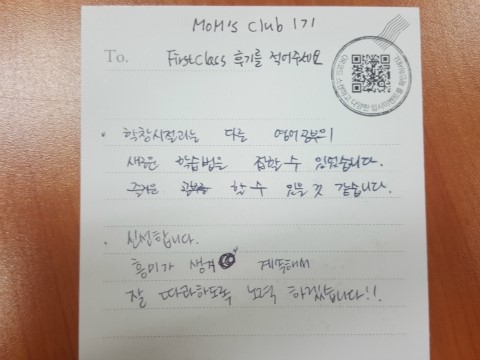 MOM's Club 1기
To. First Class 후기를 적어주세요
• 학창시절과는 다른 영어공부의
새로운 학습법을 접할 수 있었습니다.
즐거운 공부를 할 수 있을 것 같습니다.
• 신선합니다.
흥미가 생겨 계속해서
잘 따라하도록 노력 하겠습니다!!.